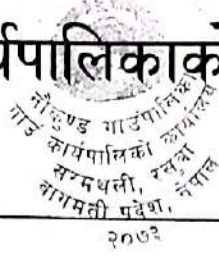 र्यपालिकाको
नौकुण्ड गाउँपालिका
गाउँ कार्यपालिकाको कार्यालय
सरमथली, रसुवा
बागमती प्रदेश, नेपाल
२०७३